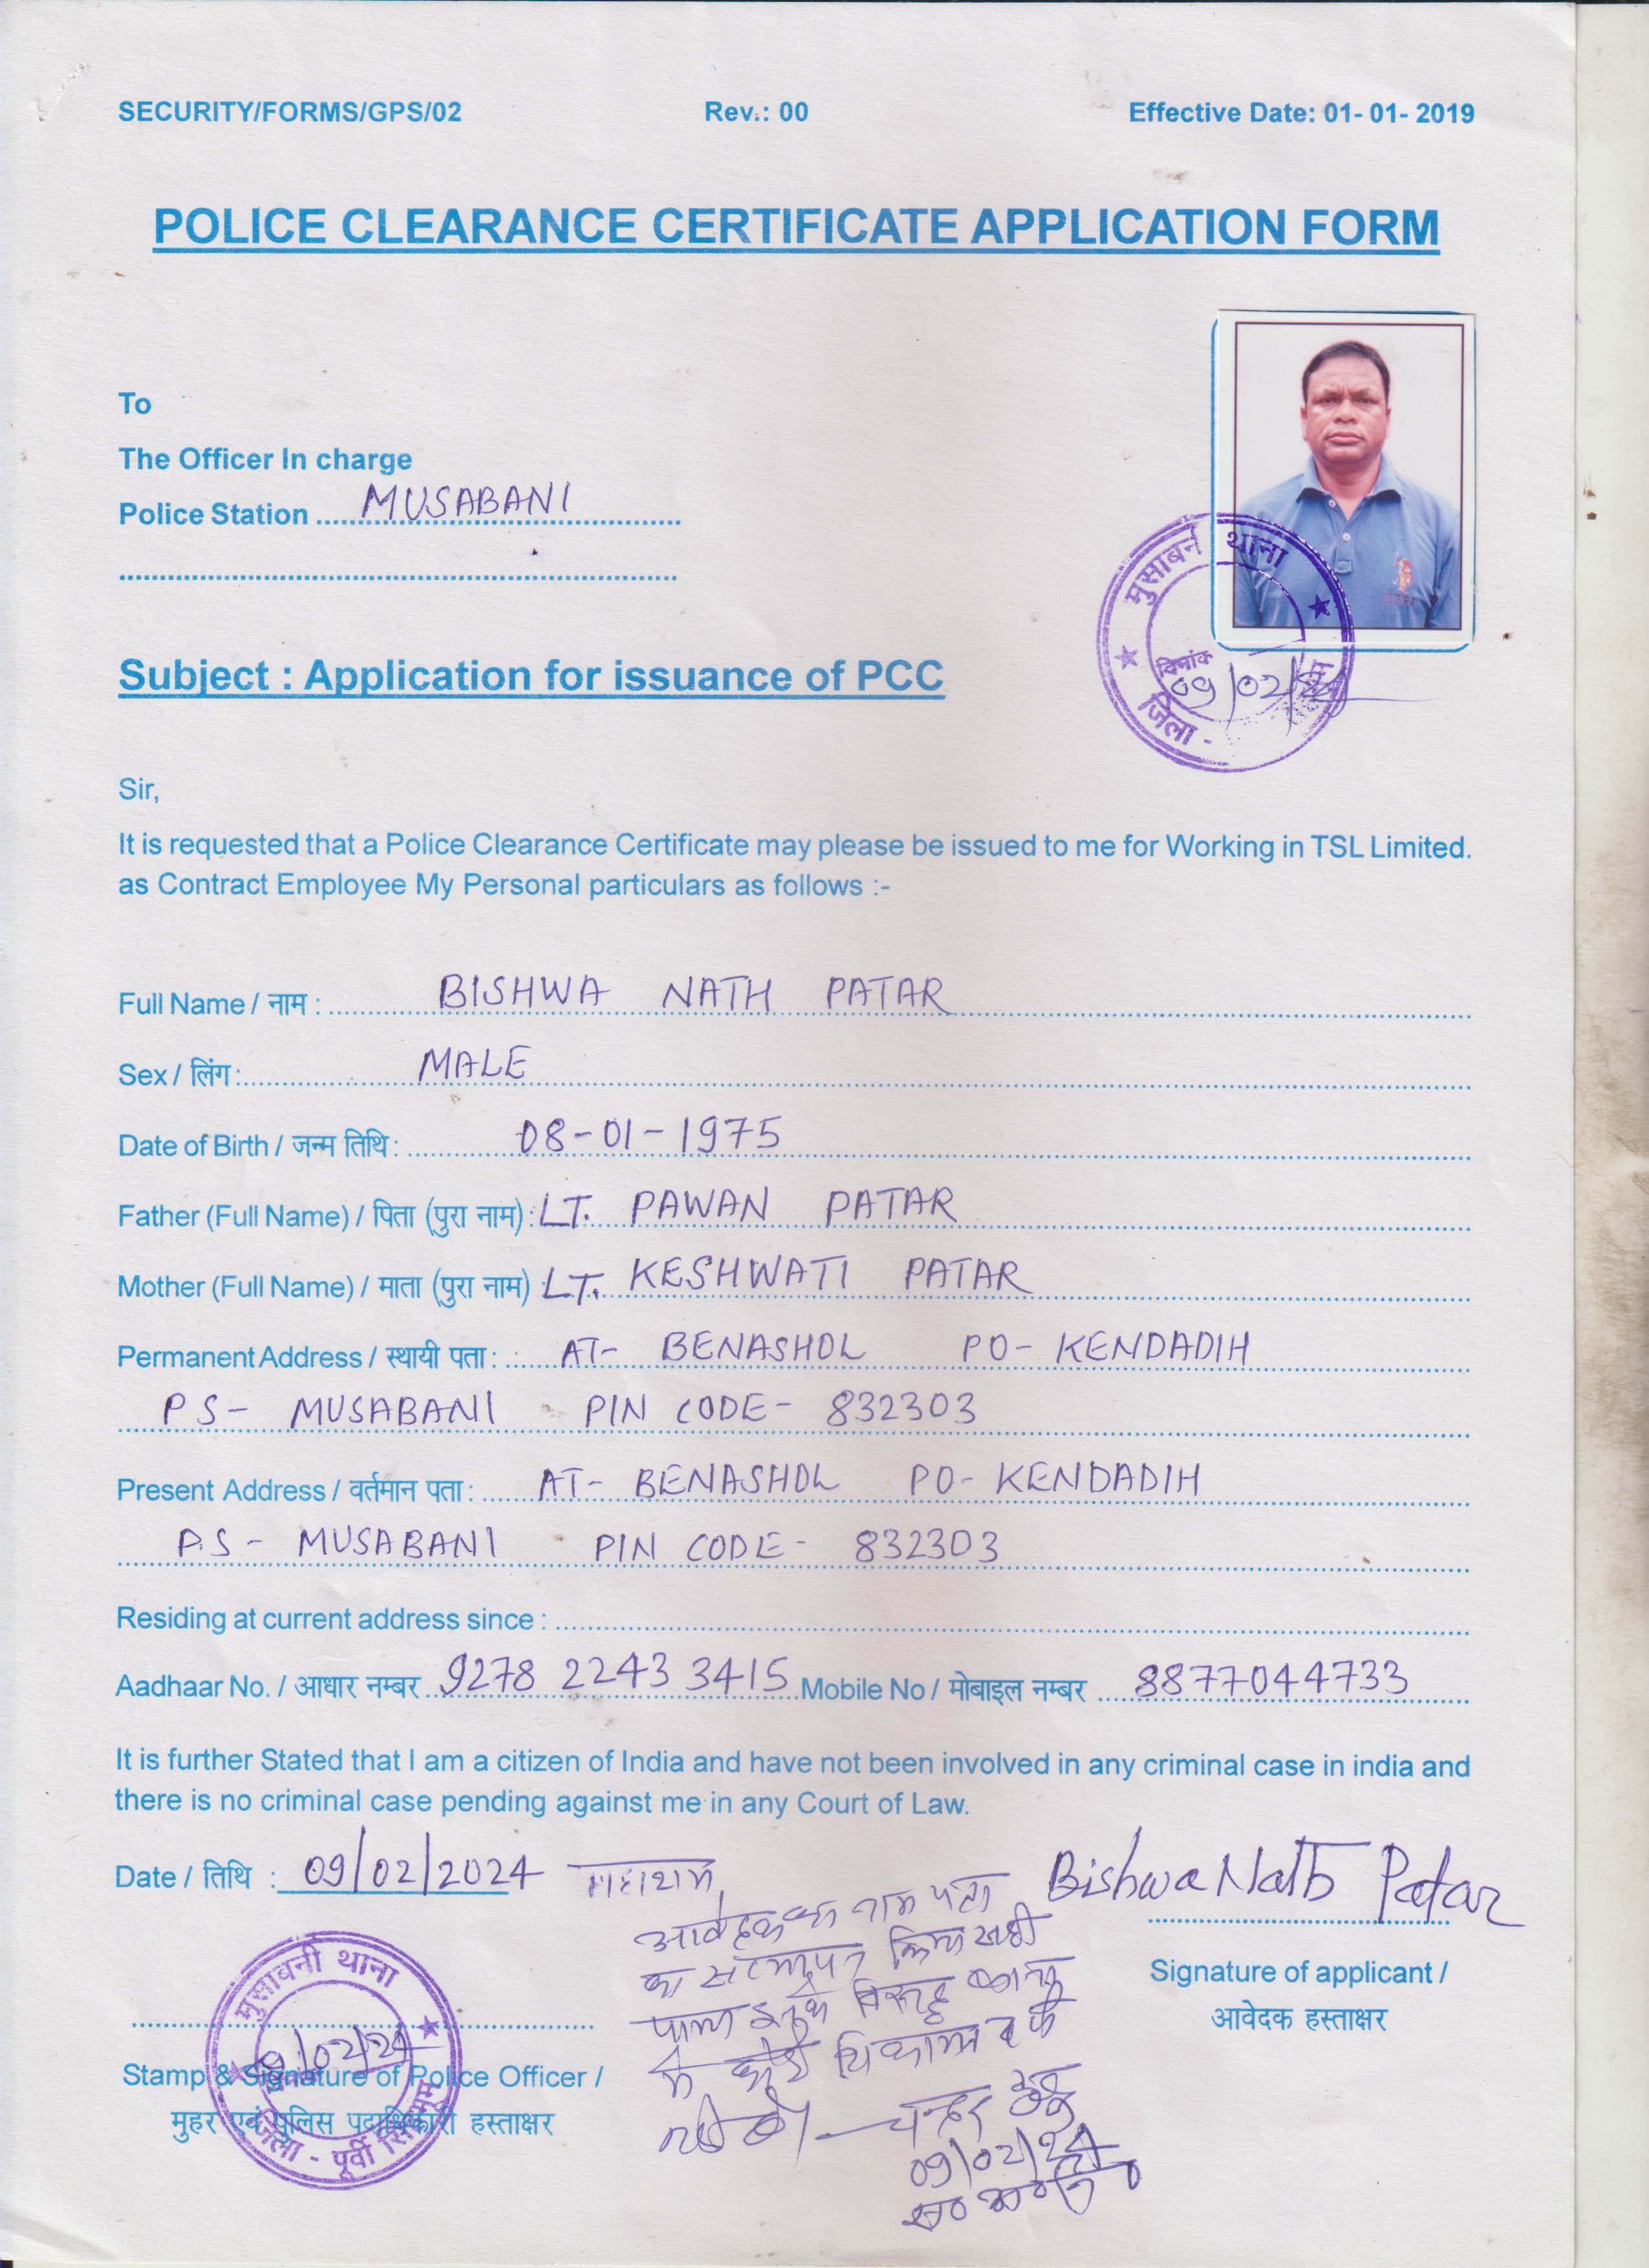 SECURITY/FORMS/GPS/02 Rev.: 00 Effective Date: 01- 01- 2019
POLICE CLEARANCE CERTIFICATE APPLICATION FORM
To
The Officer In charge
Police Station MUSABANI
मुसाबनी थाना
दिनांक
09/02/24
जिला -
Subject : Application for issuance of PCC
Sir,
It is requested that a Police Clearance Certificate may please be issued to me for Working in TSL Limited.
as Contract Employee My Personal particulars as follows :-
Full Name / नाम : BISHWA NATH PATAR
Sex / लिंग : MALE
Date of Birth / जन्म तिथि : 08-01-1975
Father (Full Name) / पिता (पुरा नाम) : LT. PAWAN PATAR
Mother (Full Name) / माता (पुरा नाम) LT. KESHWATI PATAR
Permanent Address / स्थायी पता : AT- BENASHOL PO- KENDADIH
PS- MUSABANI PIN CODE- 832303
Present Address / वर्तमान पता : AT- BENASHOL PO- KENDADIH
P.S- MUSABANI PIN CODE- 832303
Residing at current address since :
Aadhaar No. / आधार नम्बर 9278 2243 3415 Mobile No / मोबाइल नम्बर 8877044733
It is further Stated that I am a citizen of India and have not been involved in any criminal case in india and
there is no criminal case pending against me in any Court of Law.
Date / तिथि : 09/02/2024 महाशय, Bishwa Nath Patar
आवेदक का नाम पता
का सत्यापन किया
विरुद्ध
Signature of applicant /
आवेदक हस्ताक्षर
मुसाबनी थाना
09/02/24
जिला - पूर्वी सिंहभूम
Stamp & Signature of Police Officer /
मुहर एवं पुलिस पदाधिकारी हस्ताक्षर
09/02/24
स० अ० नि०